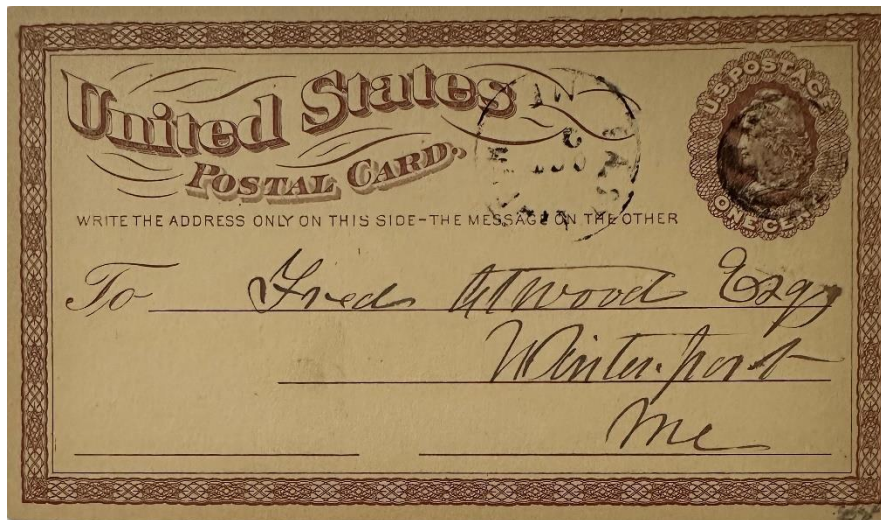 United States
POSTAL CARD.
U.S. POSTAGE
ONE CENT
WRITE THE ADDRESS ONLY ON THIS SIDE-THE MESSAGE ON THE OTHER
To Fred Atwood Esq
Winterport
Me